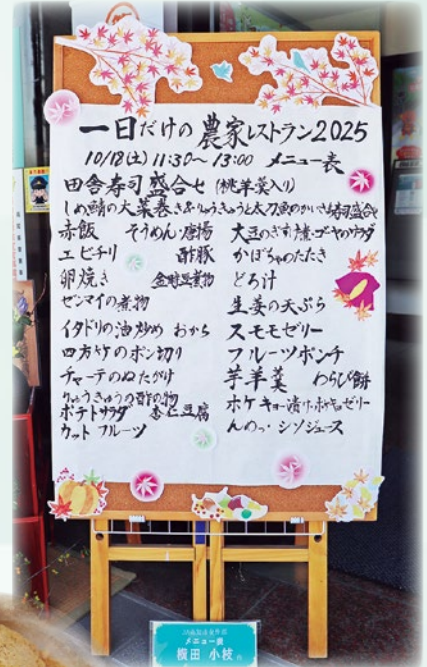 一日だけの農家レストラン2025
10/18(土) 11:30〜13:00 メニュー表
田舎寿司盛合せ(桃羊羹入り)
しめ鯖の大葉巻き りゅうきゅうと太刀魚のかいさま寿司盛合せ
赤飯 そうめん・唐揚 大豆のぎすけ煮・ゴーヤのサラダ
エビチリ 酢豚 かぼちゃのたたき
卵焼き 金時豆煮物 どろ汁
ゼンマイの煮物 生姜の天ぷら
イタドリの油炒め おから スモモゼリー
四方竹のポン切り フルーツポンチ
チャーテのぬたがけ 芋羊羹 わらび餅
りゅうきゅうの酢の物
ポテトサラダ 杏仁豆腐 ホケキョー漬け・ホケキョゼリー
カットフルーツ シソジュース
メニュー表
横田 小枝